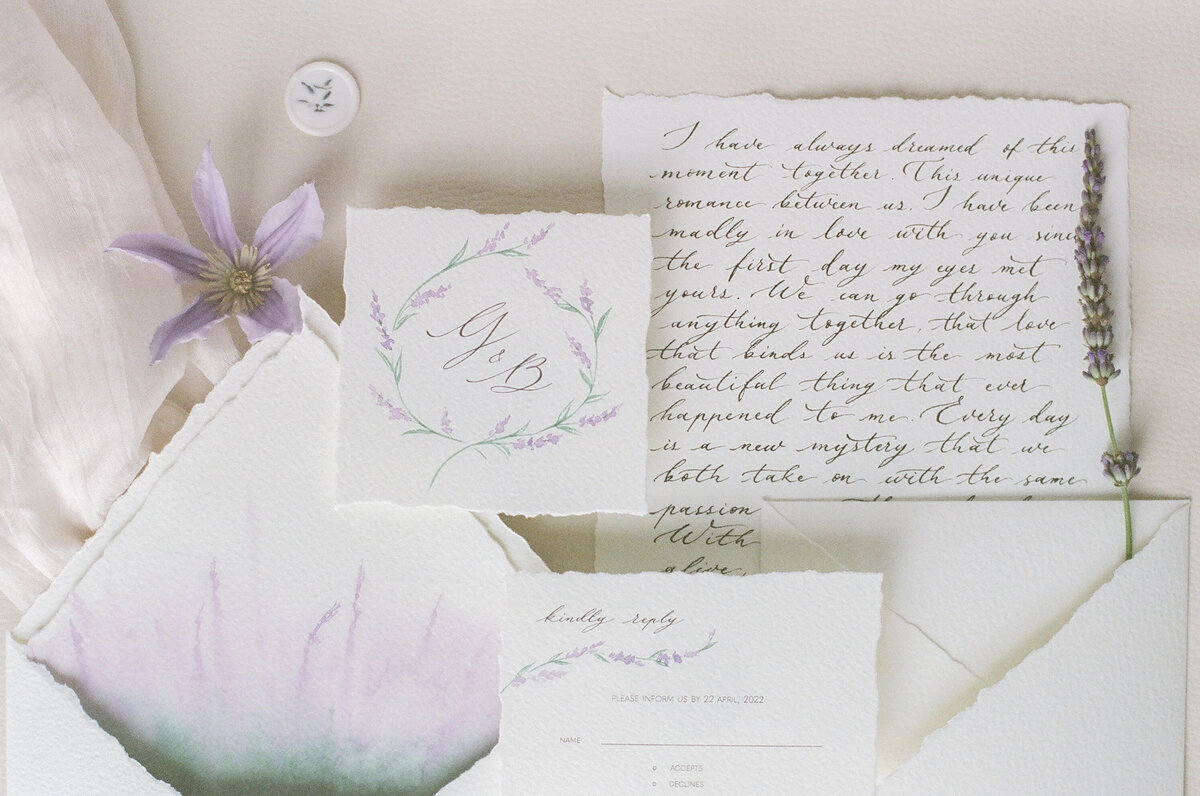 I have always dreamed of this
moment together. This unique
romance between us. I have been
madly in love with you since
the first day my eyes met
yours. We can go through
anything together, that love
that binds us is the most
beautiful thing that ever
happened to me. Every day
is a new mystery that we
both take on with the same
passion
With
alive,
G & B
kindly reply
PLEASE INFORM US BY 22 APRIL, 2022
NAME
ACCEPTS
DECLINES